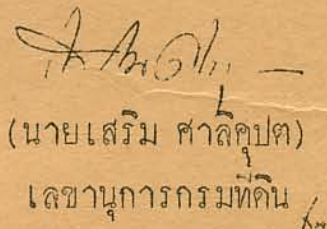 (นายเสริม ศาลิคุปต)
เลขานุการกรมที่ดิน